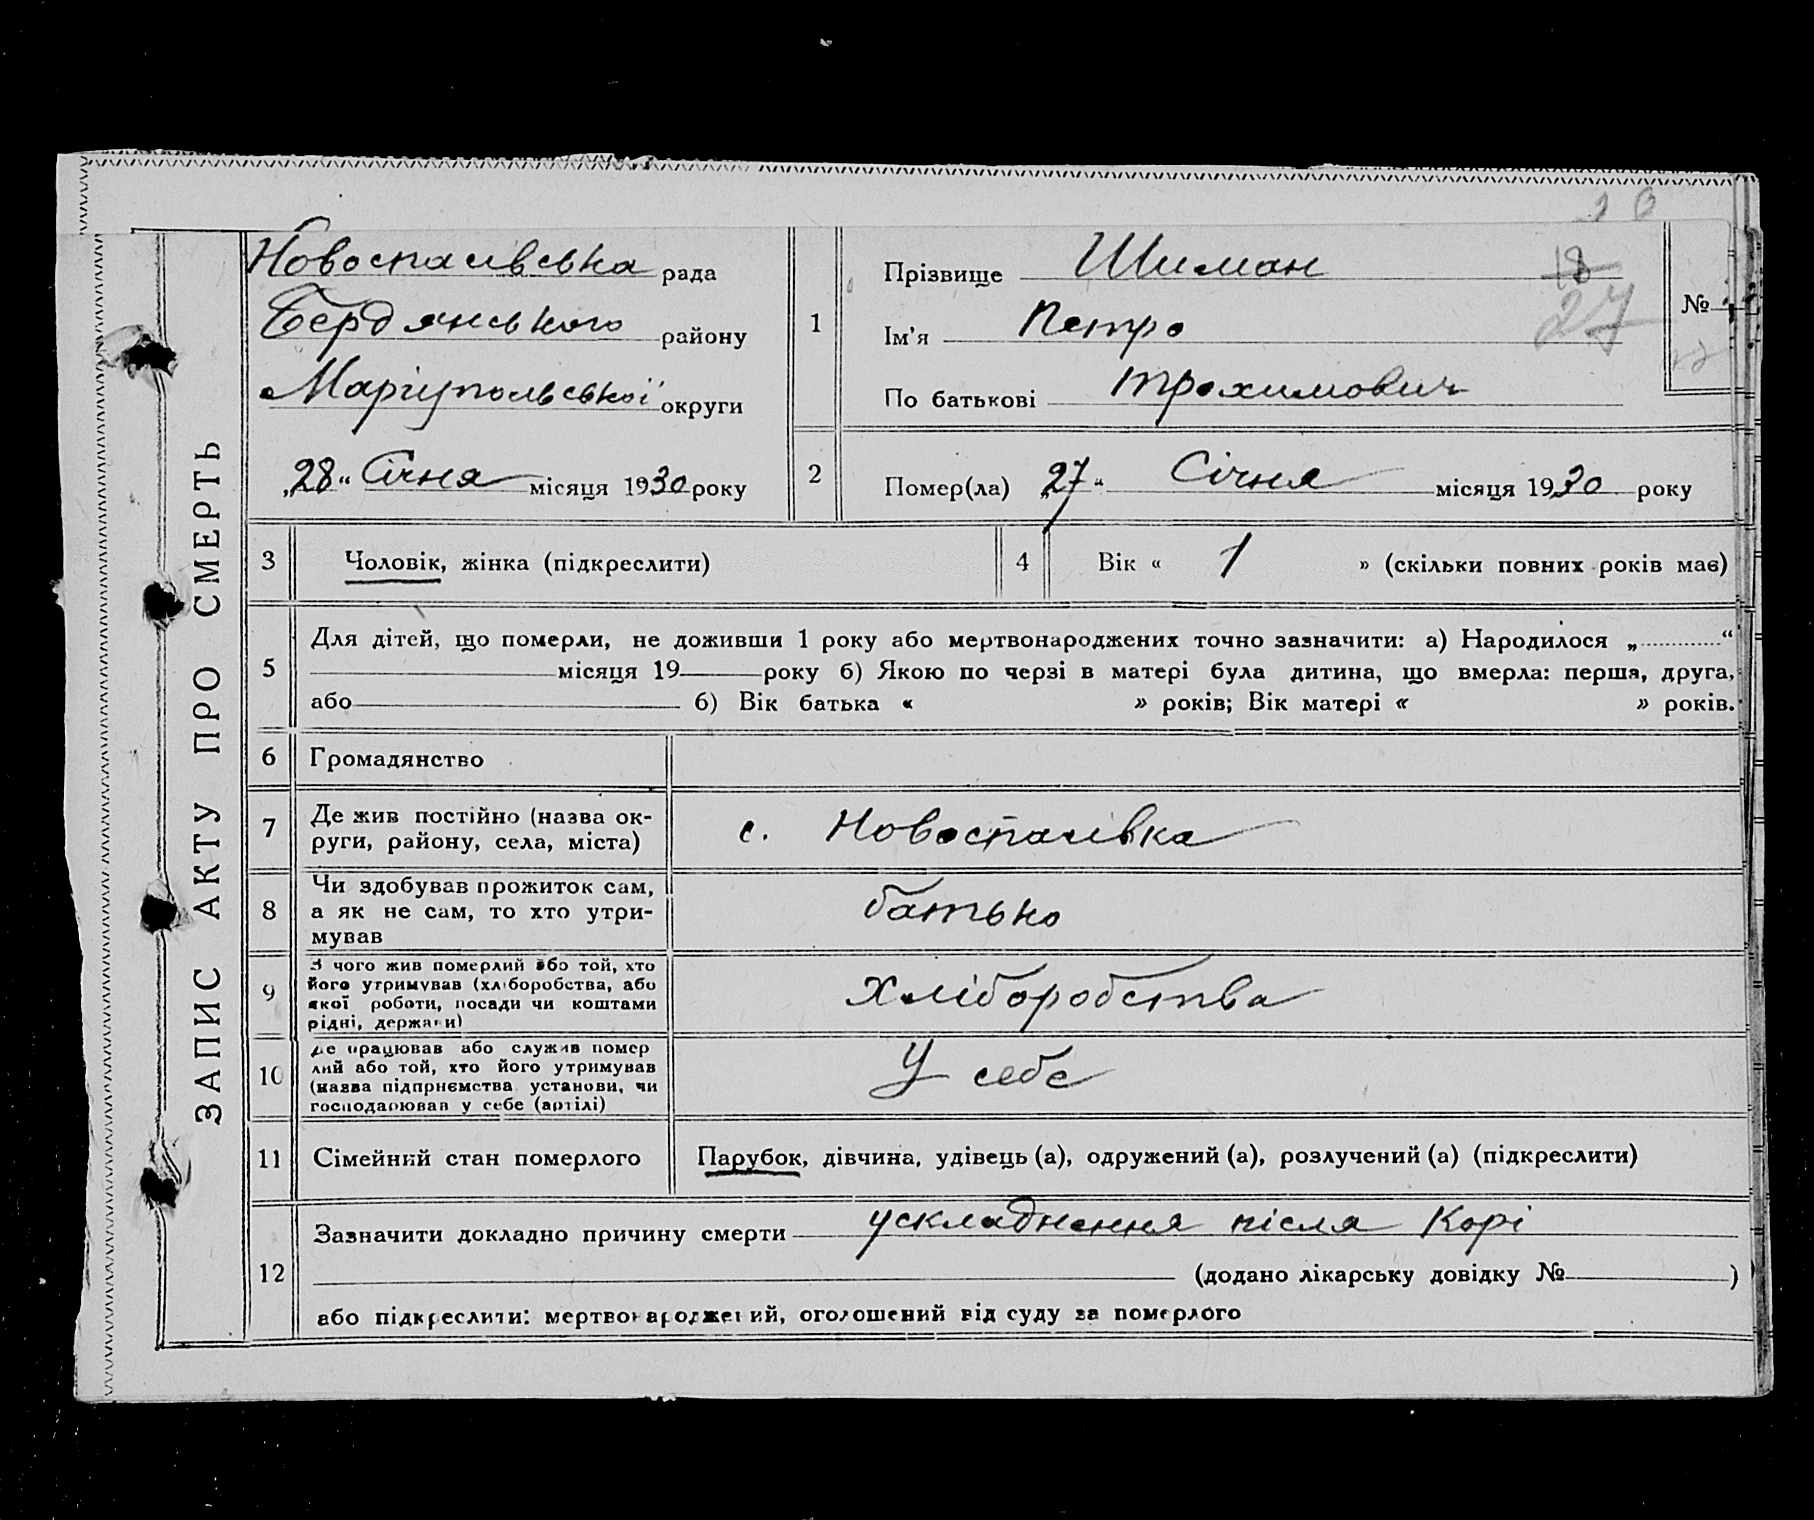 26
ЗАПИС АКТУ ПРО СМЕРТЬ
Новоспасівська рада
Бердянського району
Маріупольської округи
„28“ Січня місяця 1930 року
1
Прізвище Шиман
18
Ім’я Петро
27
По батькові Трохимович
№
2
Помер(ла) „27“ Січня місяця 1930 року
3 Чоловік, жінка (підкреслити)
4 Вік « 1 » (скільки повних років має)
5
Для дітей, що померли, не доживши 1 року або мертвонароджених точно зазначити: а) Народилося „ “
місяця 19 року б) Якою по черзі в матері була дитина, що вмерла: перша, друга,
або б) Вік батька « » років; Вік матері « » років.
6 Громадянство
7
Де жив постійно (назва ок-
руги, району, села, міста)
с. Новоспасівка
8
Чи здобував прожиток сам,
а як не сам, то хто утри-
мував
батько
9
З чого жив померлий або той, хто
його утримував (хліборобства, або
якої роботи, посади чи коштами
рідні, держави)
Хліборобства
10
Де працював або служив помер
лий або той, хто його утримував
(назва підприємства установи, чи
господарював у себе (артілі)
У себе
11 Сімейний стан померлого
Парубок, дівчина, удівець (а), одружений (а), розлучений (а) (підкреслити)
12
Зазначити докладно причину смерти ускладнення після Корі
(додано лікарську довідку № )
або підкреслити: мертвонароджений, оголошений від суду за померлого